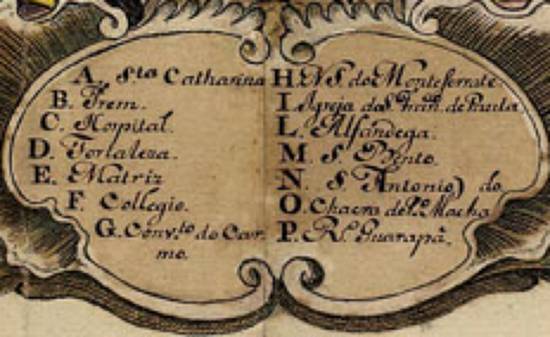 A. Sta Catharina
B. Trem.
C. Hospital.
D. Fortaleza.
E. Matriz
F. Collegio.
G. Conv.to do Car
mo.
H. N.S. do Monteserrate
I. Igreja da S. Fran. de Paula
L. Alfandega.
M. S. Bento.
N. S. Antonio do
O. Chacra de
P. R. Guarapâ.